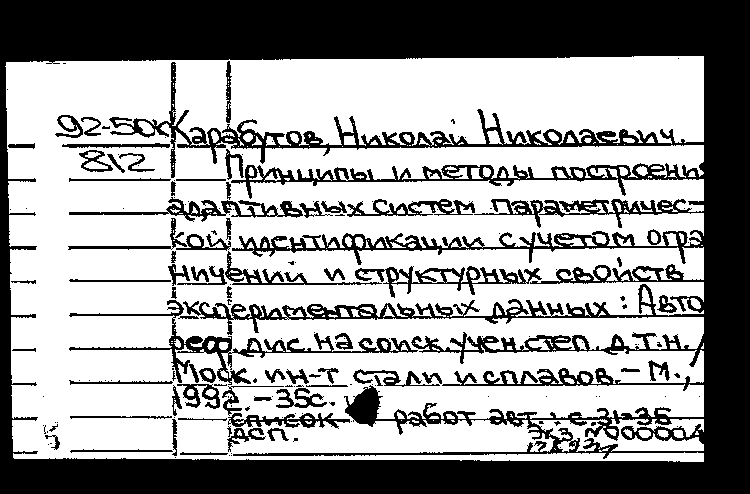 92-50к Карабутов, Николай Николаевич.
812 Принципы и методы построения
адаптивных систем параметричес-
кой идентификации с учетом огра
ничений и структурных свойств
экспериментальных данных : Авто
реф. дис. на соиск. учен. степ. д.т.н. /
Моск. ин-т стали и сплавов. - М.,
1992. - 35с.
Список работ авт. : с. 31-35
ДСП.
Экз. N000004